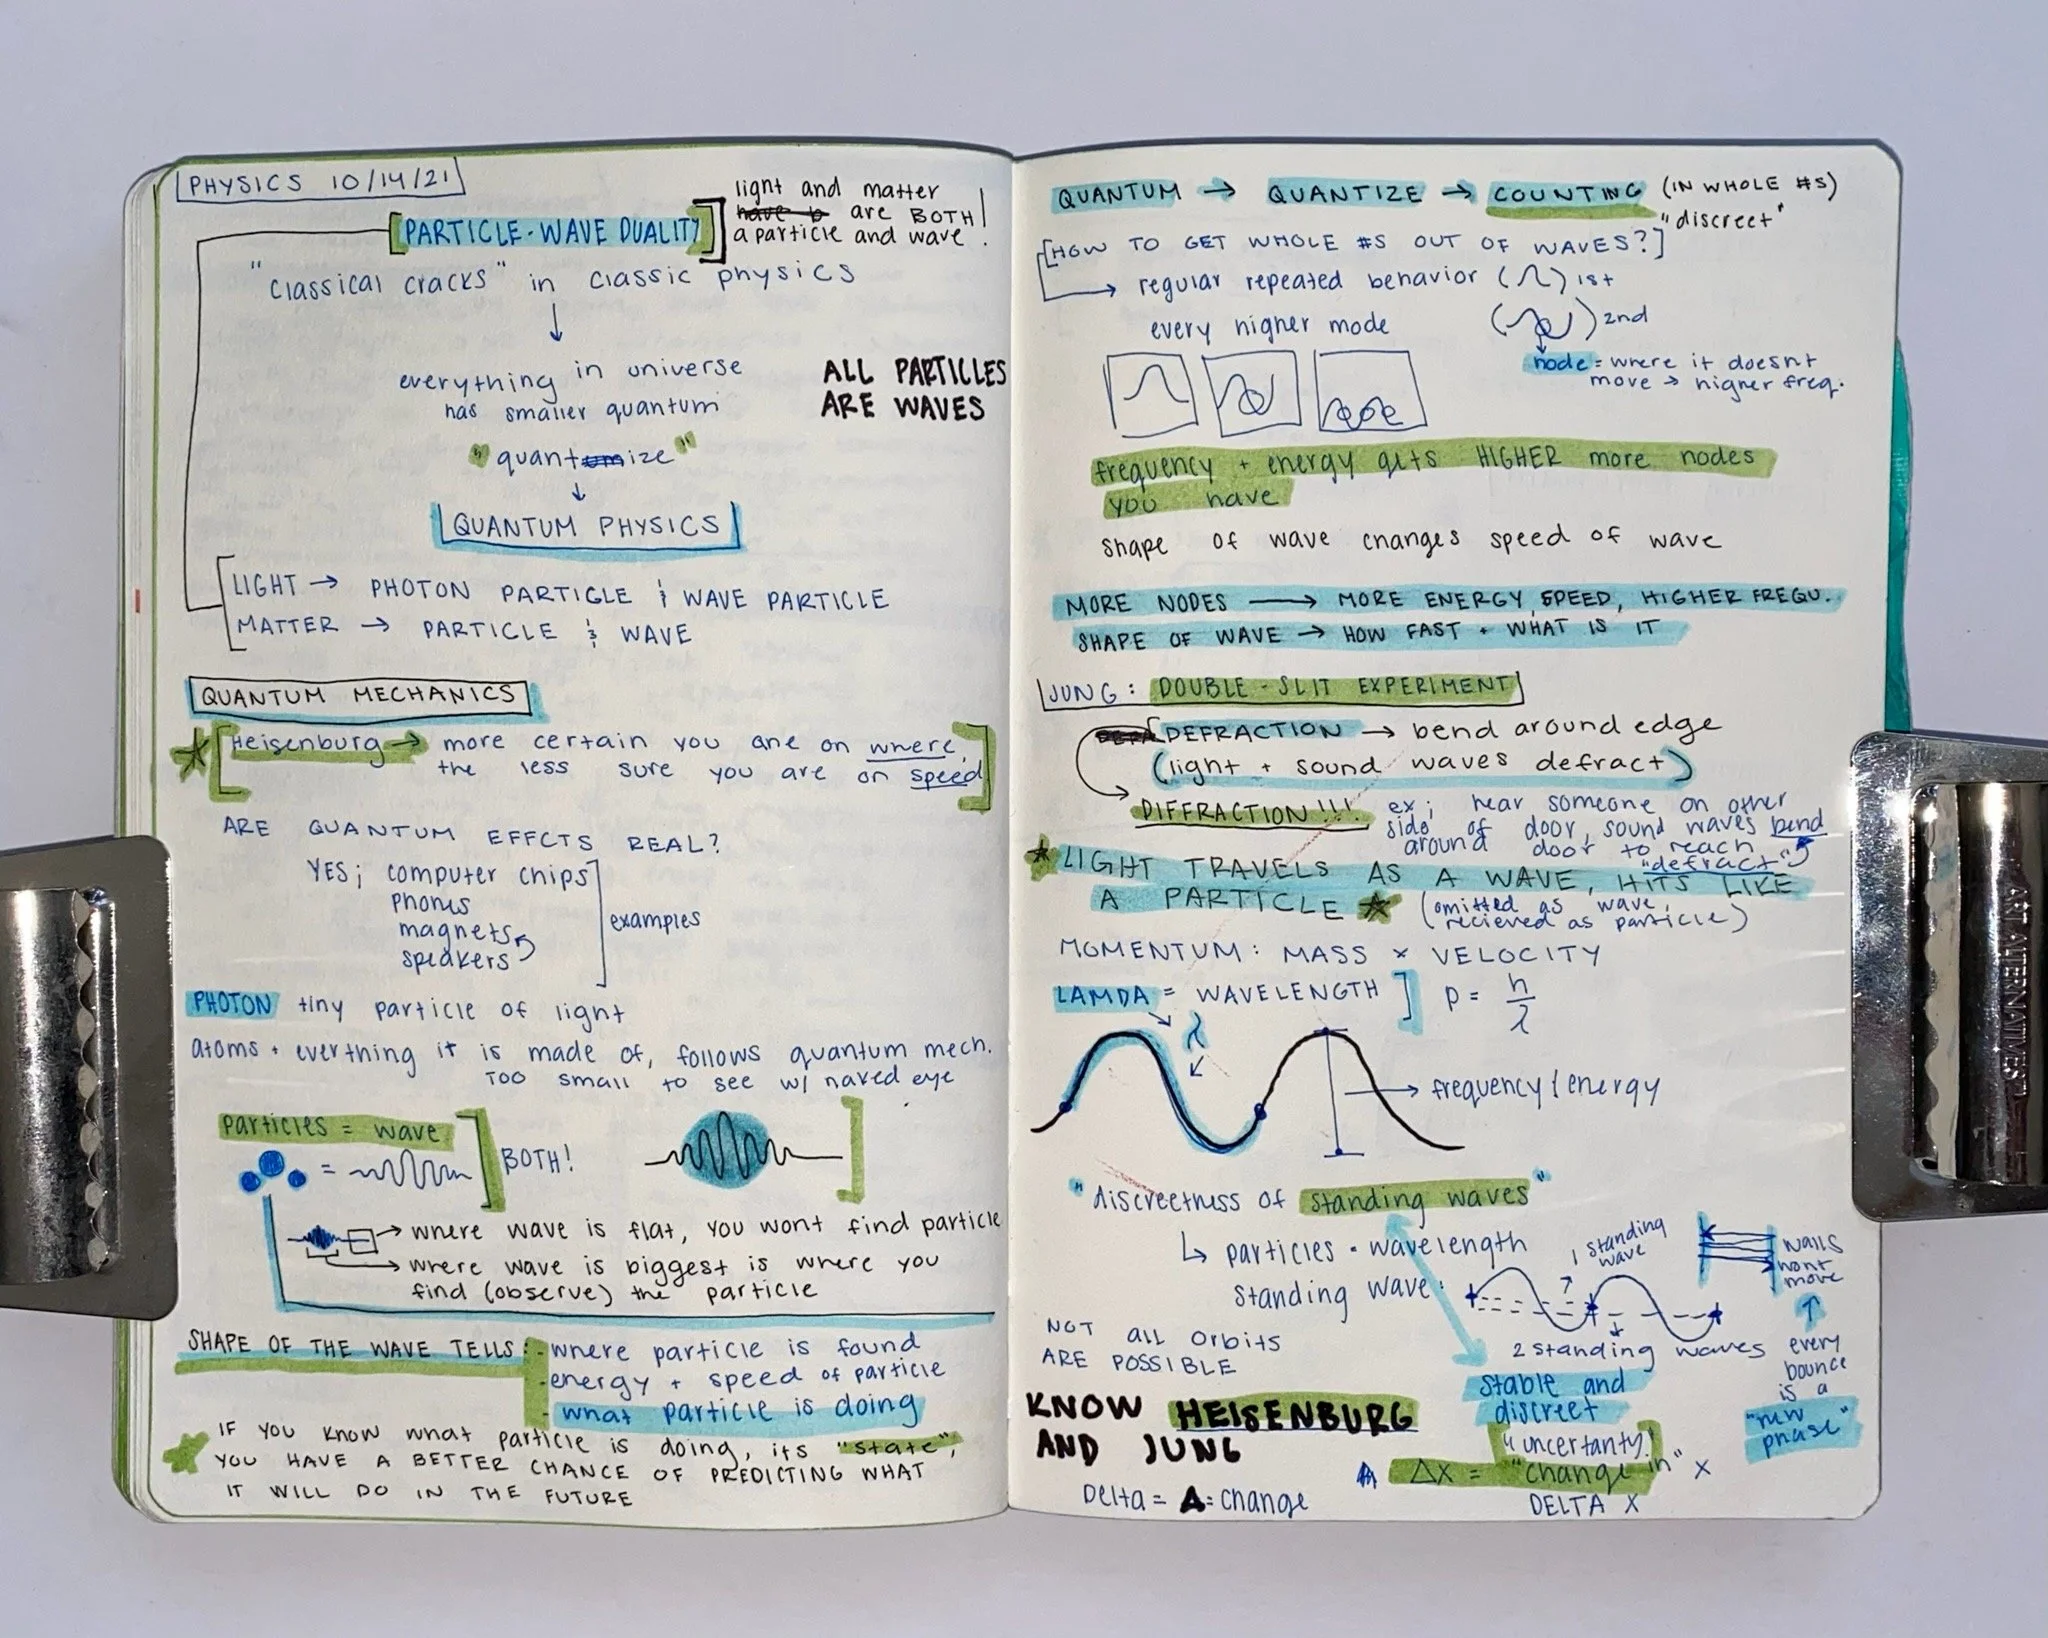 PHYSICS 10/14/21
PARTICLE-WAVE DUALITY
light and matter
have b are BOTH!
a particle and wave
"classical cracks" in classic physics
everything in universe
has smaller quantum
ALL PARTICLES
ARE WAVES
"quantumize"
QUANTUM PHYSICS
LIGHT → PHOTON PARTICLE & WAVE PARTICLE
MATTER → PARTICLE & WAVE
QUANTUM MECHANICS
Heisenburg → more certain you are on where,
the less sure you are on speed
ARE QUANTUM EFFCTS REAL?
YES; computer chips
phones
magnets
speakers
examples
PHOTON tiny particle of light
atoms + everthing it is made of, follows quantum mech.
TOO small to see w/ naked eye
particles = wave
=
BOTH!
→ where wave is flat, you wont find particle
→ where wave is biggest is where you
find (observe) the particle
SHAPE OF THE WAVE TELLS: - where particle is found
- energy + speed of particle
- what particle is doing
IF YOU KNOW what particle is doing, its "state",
YOU HAVE A BETTER CHANCE OF PREDICTING WHAT
IT WILL DO IN THE FUTURE
QUANTUM → QUANTIZE → COUNTING (IN WHOLE #S)
"discreet"
[HOW TO GET WHOLE #S OUT OF WAVES?]
→ regular repeated behavior ( ) 1st
every higher mode
( ) 2nd
node = where it doesnt
move → higher freq.
frequency + energy gets HIGHER more nodes
you have
shape of wave changes speed of wave
MORE NODES → MORE ENERGY, SPEED, HIGHER FREQU.
SHAPE OF WAVE → HOW FAST + WHAT IS IT
JUNG: DOUBLE-SLIT EXPERIMENT
DEFRACTION → bend around edge
(light + sound waves defract)
DIFFRACTION!!!
ex; hear someone on other
side of door, sound waves bend
around door to reach
"defract"
LIGHT TRAVELS AS A WAVE, HITS LIKE
A PARTICLE
(omitted as wave,
recieved as particle)
MOMENTUM: MASS × VELOCITY
LAMDA = WAVELENGTH] p = h/λ
λ
→ frequency/energy
"discreetness of standing waves"
↳ particles · wavelength
standing wave:
1 standing
wave
2 standing waves
walls
wont
move
↑
every
bounce
is a
"new
phase"
NOT all orbits
ARE POSSIBLE
stable and
discreet
KNOW HEISENBURG
AND JUNG
"uncertanty!
Δx = "change in" x
DELTA X
Delta = Δ = change